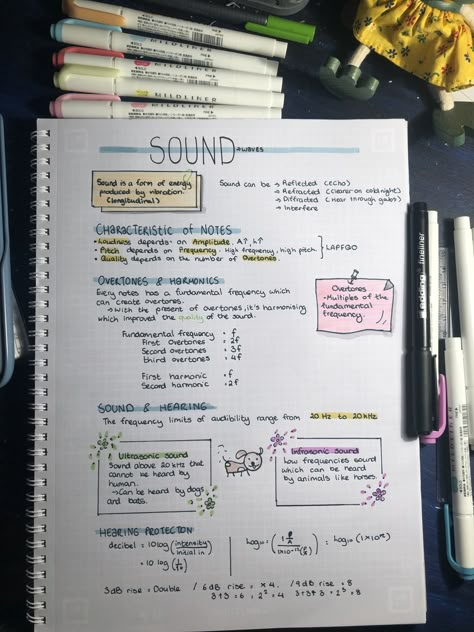 MILDLINER
MILDLINER
MILDLINER
SOUND → WAVES
Sound is a form of energy
produced by vibration.
(longitudinal)
Sound can be → Reflected (echo)
→ Refracted (clearer on cold night)
→ Diffracted (Hear through gaps)
→ Interfere
CHARACTERISTIC OF NOTES
• Loudness depends on Amplitude. A↑, L↑
• Pitch depends on Frequency. High frequency, high pitch.
• Quality depends on the number of Overtones.
LAPFQO
OVERTONES & HARMONICS
Every notes has a fundamental frequency which
can create overtones.
→ With the present of overtones, it's harmonising
which improved the quality of the sound.
Overtones
• Multiples of the
fundamental
frequency.
Fundamental frequency = f
First overtones = 2f
Second overtones = 3f
third overtones = 4f
First harmonic = f
Second harmonic = 2f
SOUND & HEARING
The frequency limits of audibility range from 20 Hz to 20 kHz
Ultrasonic sound
Sound above 20 kHz that
cannot be heard by
human.
→ Can be heard by dogs
and bats.
Infrasonic sound
Low frequencies sound
which can be heard
by animals like horses.
HEARING PROTECTION
decibel = 10 log (intensity / initial in)
= 10 log
3dB rise = Double / 6 dB rise = x 4. / 9 dB rise = 8
3+3 = 6 = 2² = 4 3+3+3 = 2³ = 8
edding fineliner